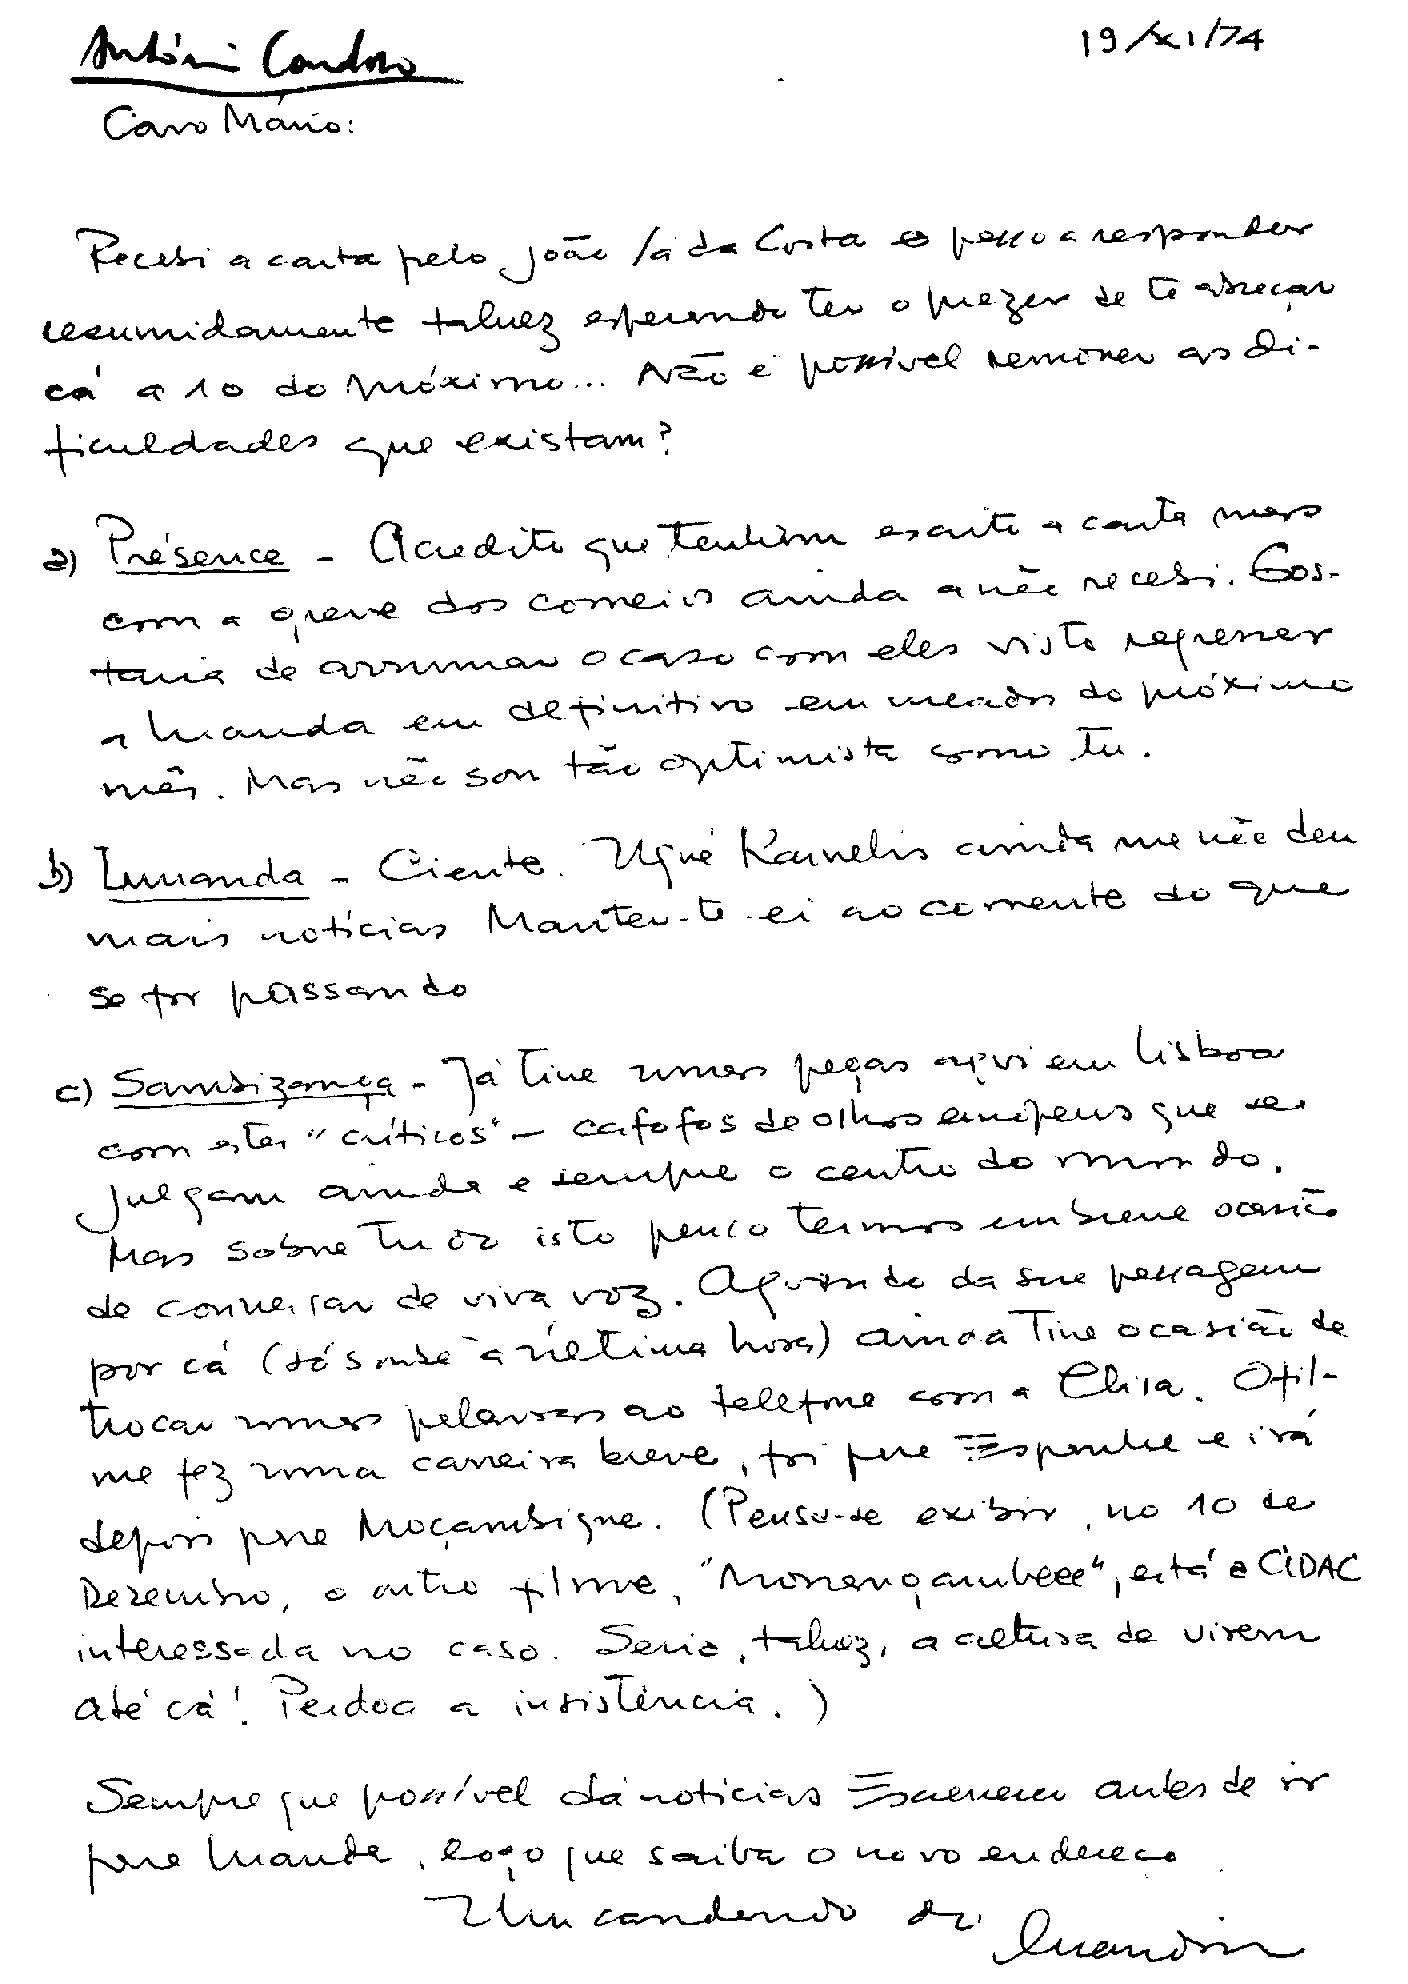 António Cardoso
19/XI/74
Caro Mário:
Recebi a carta pelo João Sá da Costa e passo a responder
resumidamente talvez esperando ter o prazer de te abraçar
cá a 10 do próximo... Não é possível remover as di-
ficuldades que existam?
a) Présence - Acredito que tenham escrito a carta mas
com a greve dos correios ainda a não recebi. Gos-
taria de arrumar o caso com eles visto regressar
a Luanda em definitivo em meados do próximo
mês. Mas não sou tão optimista como tu.
b) Luuanda - Ciente. ainda me não deu
mais notícias Manter-te-ei ao corrente do que
se for passando
c) Sambizanga - Já tive umas pegas aqui em Lisboa
com estes "críticos" - cafofos de olhos europeus que se
julgam ainda e sempre o centro do mundo.
Mas sobre tudo isto penso termos em breve ocasião
de conversar de viva voz. Aquando da sua passagem
por cá (só soube à última hora) ainda tive ocasião de
trocar umas palavras ao telefone com a Elisa. O fil-
me fez uma carreira breve, foi para Espanha e irá
depois para Moçambique. (Pensa-se exibir, no 10 de
Dezembro, o outro filme, "Monangambeee", está o CIDAC
interessada no caso. Seria, talvez, a altura de virem
até cá! Perdoa a insistência.)
Sempre que possível dá notícias Escreverei antes de ir
para Luanda, logo que saiba o novo endereço
Um candando do
Luandino